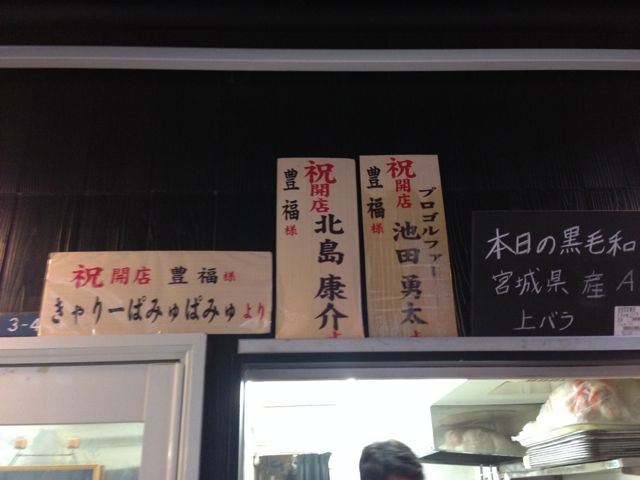 祝開店 豊福様
きゃりーぱみゅぱみゅより
祝開店
豊福様
北島康介
祝開店
豊福様
プロゴルファー
池田勇太
本日の黒毛和
宮城県産 A
上バラ
3-4